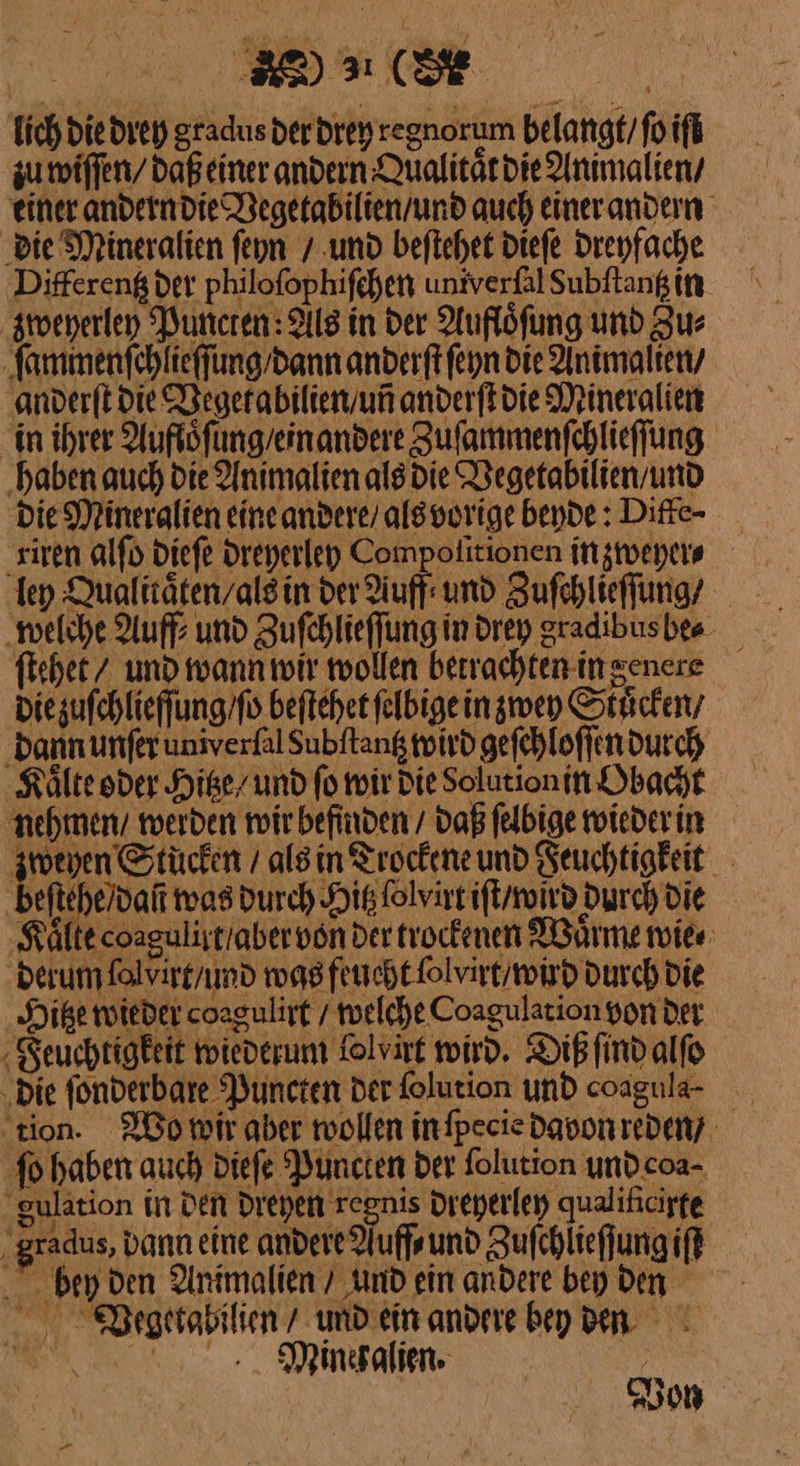 31
lich die drey gradus der drey regnorum belangt/ ſo iſt
zu wiſſen/ daß einer andern Qualitaͤt die Animalien/
einer andern die Vegetabilien/ und auch einer andern
die Mineralien ſeyn / und beſtehet dieſe dreyfache
Differentz der philoſophiſchen univerſal Subſtantz in
zweyerley Puncten: Als in der Aufloͤſung und Zu⸗
ſammenſchlieſſung/ dann anderſt ſeyn die Animalien/
anderſt die Vegetabilien/ uñ anderſt die Mineralien
in ihrer Aufloͤſung/ ein andere Zuſammenſchlieſſung
haben auch die Animalien als die Vegetabilien/ und
die Mineralien eine andere/ als vorige beyde: Diffe-
riren alſo dieſe dreyerley Compoſitionen in zweyer⸗
ley Qualitaͤten/ als in der Auff⸗ und Zuſchlieſſung/
welche Auff⸗ und Zuſchlieſſung in drey gradibus be⸗
ſtehet / und wann wir wollen betrachten in genere
die zuſchlieſſung/ ſo beſtehet ſelbige in zwey Stuͤcken/
dann unſer univerſal Subſtantz wird geſchloſſen durch
Kaͤlte oder Hitze/ und ſo wir die Solution in Obacht
nehmen/ werden wir befinden / daß ſelbige wieder in
zweyen Stuͤcken / als in Trockene und Feuchtigkeit
beſtehe/ dañ was durch Hitz ſolvirt iſt/ wird durch die
Kaͤlte coagulirt/ aber von der trockenen Waͤrme wie⸗
derum ſolvirt/ und was feucht ſolvirt/ wird durch die
Hitze wieder coagulirt / welche Coagulation von der
Feuchtigkeit wiederum ſolvirt wird. Diß ſind alſo
die ſonderbare Puncten der ſolution und coagula-
tion. Wo wir aber wollen in ſpecie davon reden/
ſo haben auch dieſe Puncten der ſolution und coa-
gulation in den dreyen regnis dreyerley qualificirte
gradus, dann eine andere Auff⸗ und Zuſchlieſſung iſt
bey den Animalien / und ein andere bey den
Vegetabilien / und ein andere bey den
Mineralien.
Von